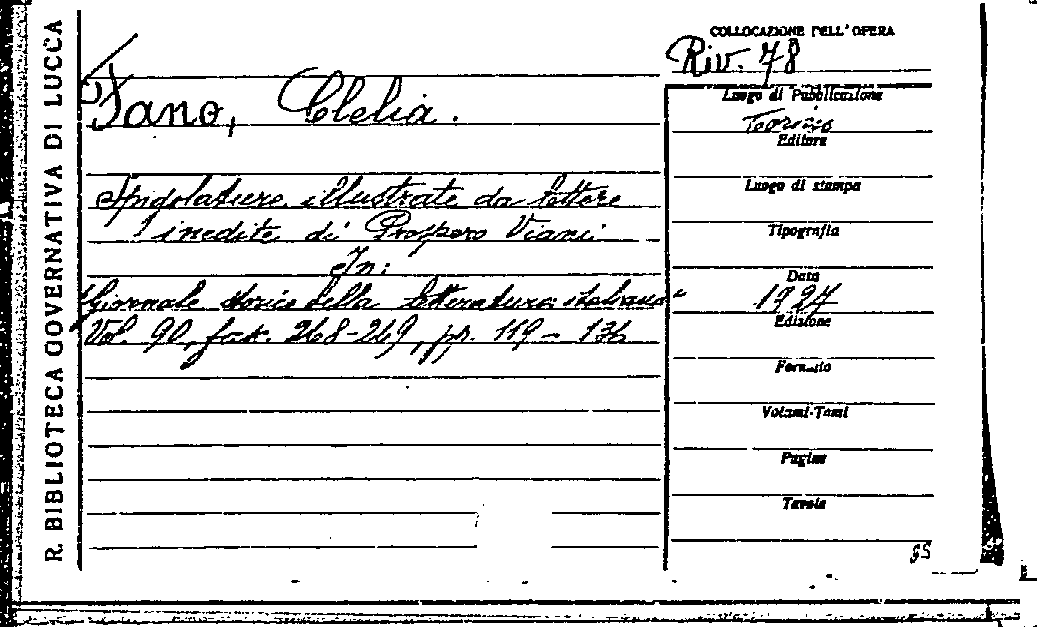 R. BIBLIOTECA GOVERNATIVA DI LUCCA
COLLOCAZIONE DELL'OPERA
Riv. 78
Fano, Clelia.
Spigolature illustrate da lettere
inedite di Prospero Viani
In:
"Giornale storico della letteratura italiana"
Vol. 90, fasc. 268-269, pp. 119-136
Luogo di Pubblicazione
Torino
Editore
Luogo di stampa
Tipografia
Data
1927
Edizione
Formato
Volumi-Tomi
Pagine
Tavole
GS